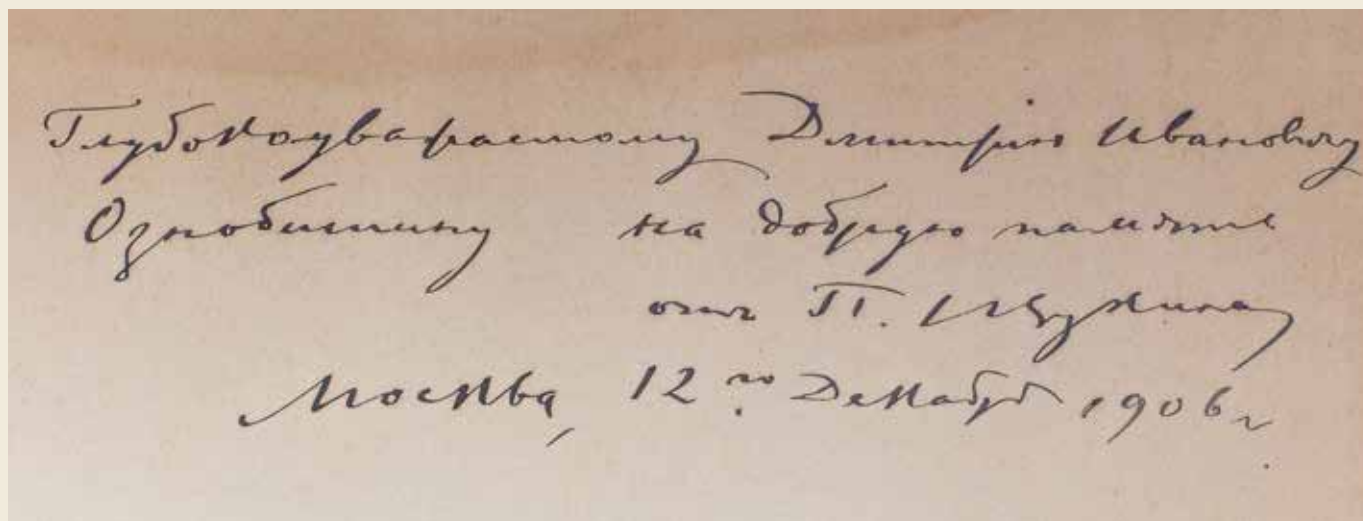 Глубокоуважаемому Дмитрію Ивановичу
Ознобишину на добрую память
отъ П. Щукина
Москва, 12го Декабря 1906 г.